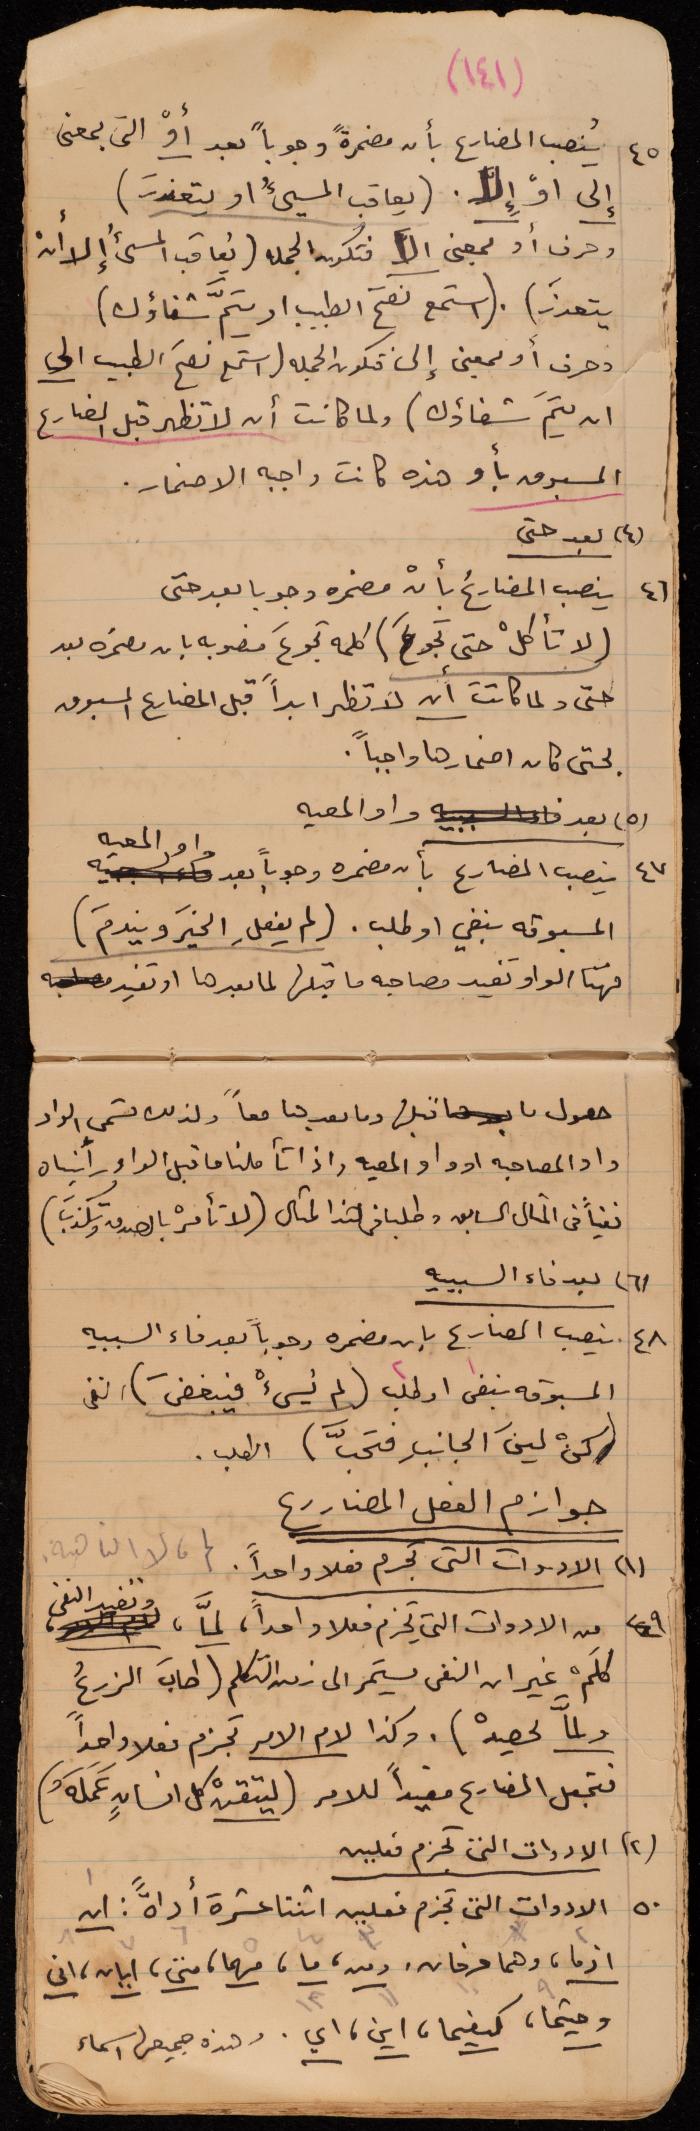 (١٤١)
٤٥ يُنصب المضارع بأن مضمرةً وجوباً بعد أوْ التي بمعنى
إلى اوْ إلّا . (يعاقب المسيءُ او يتعذرَ)
وحرف أو بمعنى الا فتكون الجمله (يُعاقب المسئُ إلا أنْ
يتعذرَ) . (استمع نصحَ الطبيب او يتمَّ شفاؤك)
وحرف أو بمعنى إلى فتكون الجمله (استمع نصحَ الطبيب الى
ان يتمَ شفاؤك) ولما كانت أن لا تظهر قبل المضارع
المسبوق بأو هذه كانت واجبه الاضمار .
(٤) بعد حتى
٤٦ ينصب المضارعُ بأنْ مضمره وجوبا بعد حتى
(لا تأكلْ حتى تجوعَ) كلمه تجوعَ منصوبه بان مضمره بعد
حتى ولما كانت أن لا تظهر ابداً قبل المضارع المسبوق
بحتى كان اضمارها واجباً .
(٥) بعد فاء السببيه واو المعيه
واو المعيه
٤٧ ينصب المضارع بأن مضمره وجوباً بعد فاء السببيه
المسبوقه بنفي او طلب . (لم يفعلِ الخيرَ ويندمَ)
فهنا الواو تفيد مصاحبه ما قبلها لما بعدها او تفيد
حصول ما قبلها وما بعدها معاً ولذلك تسمى الواو
واو المصاحبه او واو المعيه واذا تأملنا ما قبل الواو رأيناه
نفياً في المثال السابق وطلبا في هذا المثال (لا تأمرْ بالصدق وتكذبَ)
(٦) بعد فاء السببيه
٤٨ ينصب المضارع بان مضمره وجوباً بعد فاء السببيه
المسبوقه بنفي ١ او طلب ٢ (لم يُسيءْ فيبغضَ) النفى
(كنْ لينَ الجانبِ فتحبَّ) الطلب .
جوازم الفعل المضارع
(١) الادوات التى تجزم فعلا واحداً . لم ، لا الناهية .
وتفيد النفى
٤٩ من الادوات التي تجزم فعلا واحداً ، لمَّا ،
كلَمْ غير ان النفى يستمر الى زمن التكلم (طابَ الزرعُ
ولمَّا يحصدْ) . وكذا لام الامر تجزم فعلا واحداً
فتجعل المضارع مفيداً للامر (ليتقنْ كل انسانٍ عَمَلَهُ)
(٢) الادوات التى تجزم فعلين
٥٠ الادوات التى تجزم فعلين اثنتا عشرة أداةً : ان
اذما ، وهما حرفان ، ومن ، ما ، مهما ، متى ، ايان ، انى
وحيثما ، كيفما ، اين ، اي . وهذه جميعها اسماء